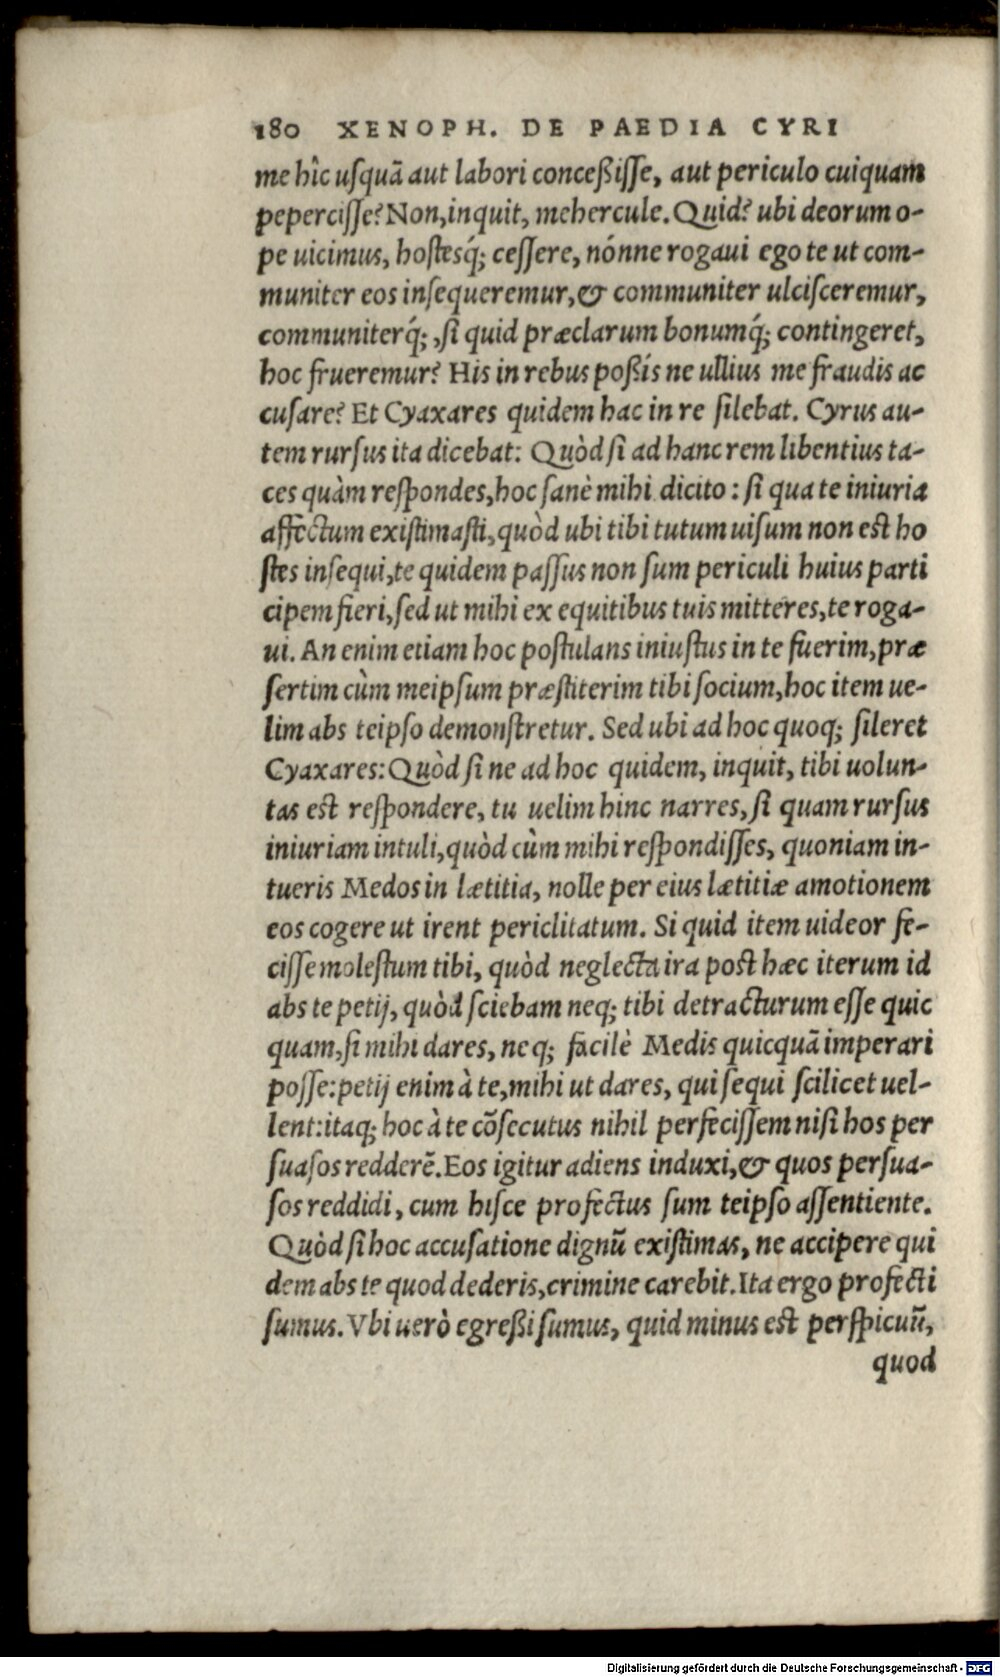 180 XENOPH. DE PAEDIA CYRI
me hîc usquã aut labori conceßisse, aut periculo cuiquam
pepercisse? Non, inquit, mehercule. Quid? ubi deorum o-
pe uicimus, hostesq́; cessere, nónne rogaui ego te ut com-
muniter eos insequeremur, & communiter ulcisceremur,
communiterq́;, si quid præclarum bonumq́; contingeret,
hoc frueremur? His in rebus poßís ne ullius me fraudis ac
cusare? Et Cyaxares quidem hac in re silebat. Cyrus au-
tem rursus ita dicebat: Quòd si ad hanc rem libentius ta-
ces quàm respondes, hoc sanè mihi dicito: si qua te iniuria
affectum existimasti, quòd ubi tibi tutum uisum non est ho
stes insequi, te quidem passus non sum periculi huius parti
cipem fieri, sed ut mihi ex equitibus tuis mitteres, te roga-
ui. An enim etiam hoc postulans iniustus in te fuerim, præ
sertim cùm meipsum præstiterim tibi socium, hoc item ue-
lim abs teipso demonstretur. Sed ubi ad hoc quoq; sileret
Cyaxares: Quòd si ne ad hoc quidem, inquit, tibi uolun-
tas est respondere, tu uelim hinc narres, si quam rursus
iniuriam intuli, quòd cùm mihi respondisses, quoniam in-
tueris Medos in lætitia, nolle per eius lætitiæ amotionem
eos cogere ut irent periclitatum. Si quid item uideor fe-
cisse molestum tibi, quòd neglecta ira post hæc iterum id
abs te petij, quòd sciebam neq; tibi detracturum esse quic
quam, si mihi dares, neq; facilè Medis quicquã imperari
posse: petij enim à te, mihi ut dares, qui sequi scilicet uel-
lent: itaq; hoc à te cõsecutus nihil perfecissem nisi hos per
suasos redderẽ. Eos igitur adiens induxi, & quos persua-
sos reddidi, cum hisce profectus sum teipso assentiente.
Quòd si hoc accusatione dignũ existimas, ne accipere qui
dem abs te quod dederis, crimine carebit. Ita ergo profecti
sumus. Vbi uerò egreßi sumus, quid minus est perspicuũ,
quod
Digitalisierung gefördert durch die Deutsche Forschungsgemeinschaft - DFG